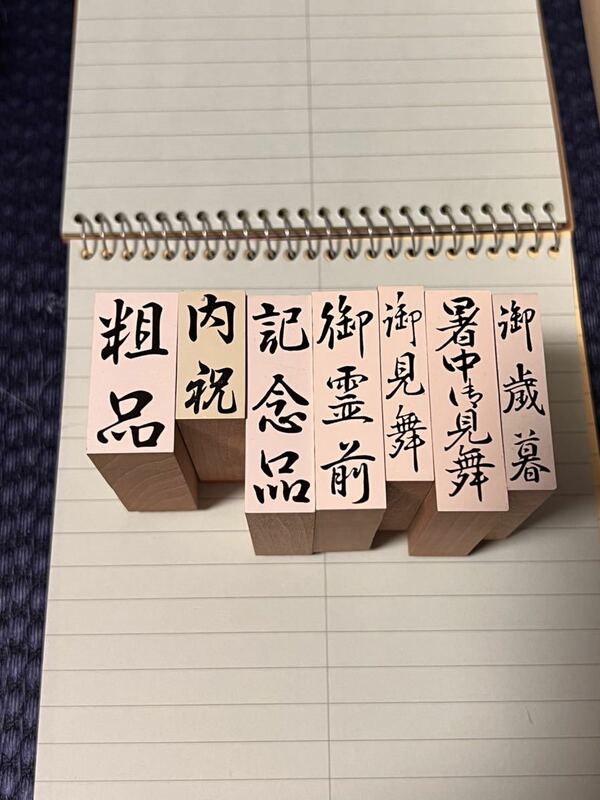 粗品
内祝
記念品
御霊前
御見舞
暑中御見舞
御歳暮